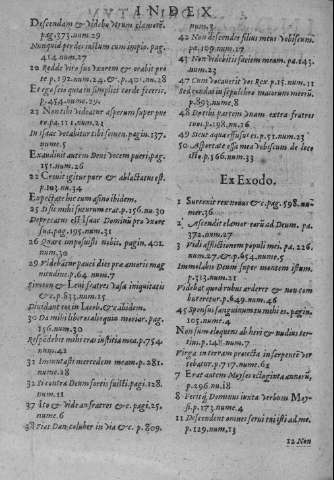 INDEX
Descendam & videbo utrum clamorẽ.
pag.373.num.29
Nunquid perdes iustum cum impio. pag.
414.num.27
20 Redde viro suo uxorem & orabit pro
te p.192.num.24. & p.401.nu.28
Et ego scio quòd in simplici corde feceris.
p.454.num.29.
22 Non tibi videatur asperum super pue
ro.p.411.num.24
In isaac vocabitur tibi semen. pagin.337.
nume.5
Exaudivit autem Deus vocem pueri.pag.
151.num.26
22 Crevit igitur puer & ablactatus est.
p.103.nu.34
Expectate hic cum asino ibidem.
25 Si sic mihi futurum erat.p.156.nu.30
Deprecatus est Isaac Dominũ pro uxore
sua.pag.195.num.31
26 Quare imposuisti nobis. pagin.401.
num.30
29 Videbantur pauci dies præ amoris mag
nitudine.p.64.num.7
Simeon & Levi fratres vasa iniquitatis
& c.p.633.num.15
30 Da mihi liberos alioquin moriar. pag.
156.num.30
Respõdebit mihi cras iustitia mea.p.754.
num.42
31 Immutasti mercedem meam. p.281.
nume.18
32 Si contra Deum fortis fuisti.pagi.128.
num.11
37 Ito & vide an fratres & c. pag.25.
nume.6
Fiat Dan coluber in via & c. p.809.
num.3
42 Non descendet filius meus vobiscum.
pa.109.num.17
43 Non videbitis faciem meam. pa.143.
num.23
47 Cum vocaverit vos Rex.p.15.num.11
Sed condas in sepulchro maiorum meorũ.
p.893.num.8
48 Do tibi partem unam extra fratres
tuos.p.198.nu.36
49 Sicut aqua effusus es.p.51.num.23
50 Asportate ossa mea vobiscum de loco
isto.p.366.num.33
Ex Exodo.
1 Surrexit rex novus & c.pag.598.nu-
mer.36
2 Ascendit clamor eorũ ad Deum. pa.
372.num.27
3 Vidi afflictionem populi mei. pa.226.
num.7. & p.654.num.5
Immolabis Deum super montem istum.
p.713.num.21
Videbat quod rubus arderet & non com
bureretur.p.649.num.46
45 Sponsus sanguinum tu mihi es. pagin.
103.nume.4
Non sum eloquens ab heri & nudius ter-
tius.p.148.num.7
Virga in terram proiecta in serpentẽ ver
sebatur.p.717.nume.61
7 Erat autem Moyses octoginta annorũ.
p.296.nu.18
8 Fecitq; Dominus iuxta verbum Moy-
si.p.173.nume.4
11 Descendent omnes servi tui isti ad me.
p.129.num.13
12 Non